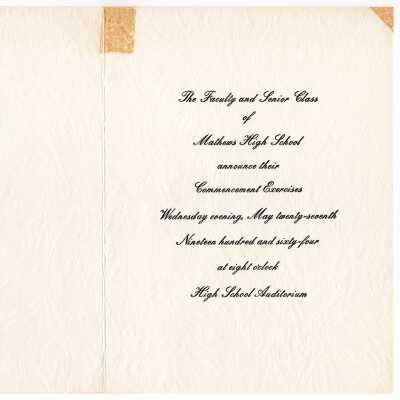 The Faculty and Senior Class
of
Mathews High School
announce their
Commencement Exercises
Wednesday evening, May twenty-seventh
Nineteen hundred and sixty-four
at eight o'clock
High School Auditorium